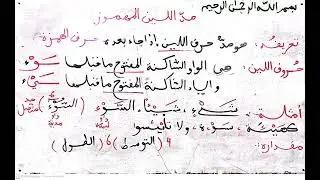 بسم الله الرحمٰن الرحيم
مدّ اللين المهموز
تعريفه : هو مدّ حرف اللين إذا جاء بعده حرف الهمزة
حروف اللين : هي الواو الساكنة المفتوح ما قبلها سَوْء
والياء الساكنة المفتوح ما قبلها شَيْء
أمثلة : شَيْءٍ ، شَيْئًا ، السَّوْءِ (السُّوْء) متصل
كَهَيْئَةِ ، سَوْءَةَ ، ولا تَايْئَسُوا
مقداره : 4 (التوسط) 6 (الطول)